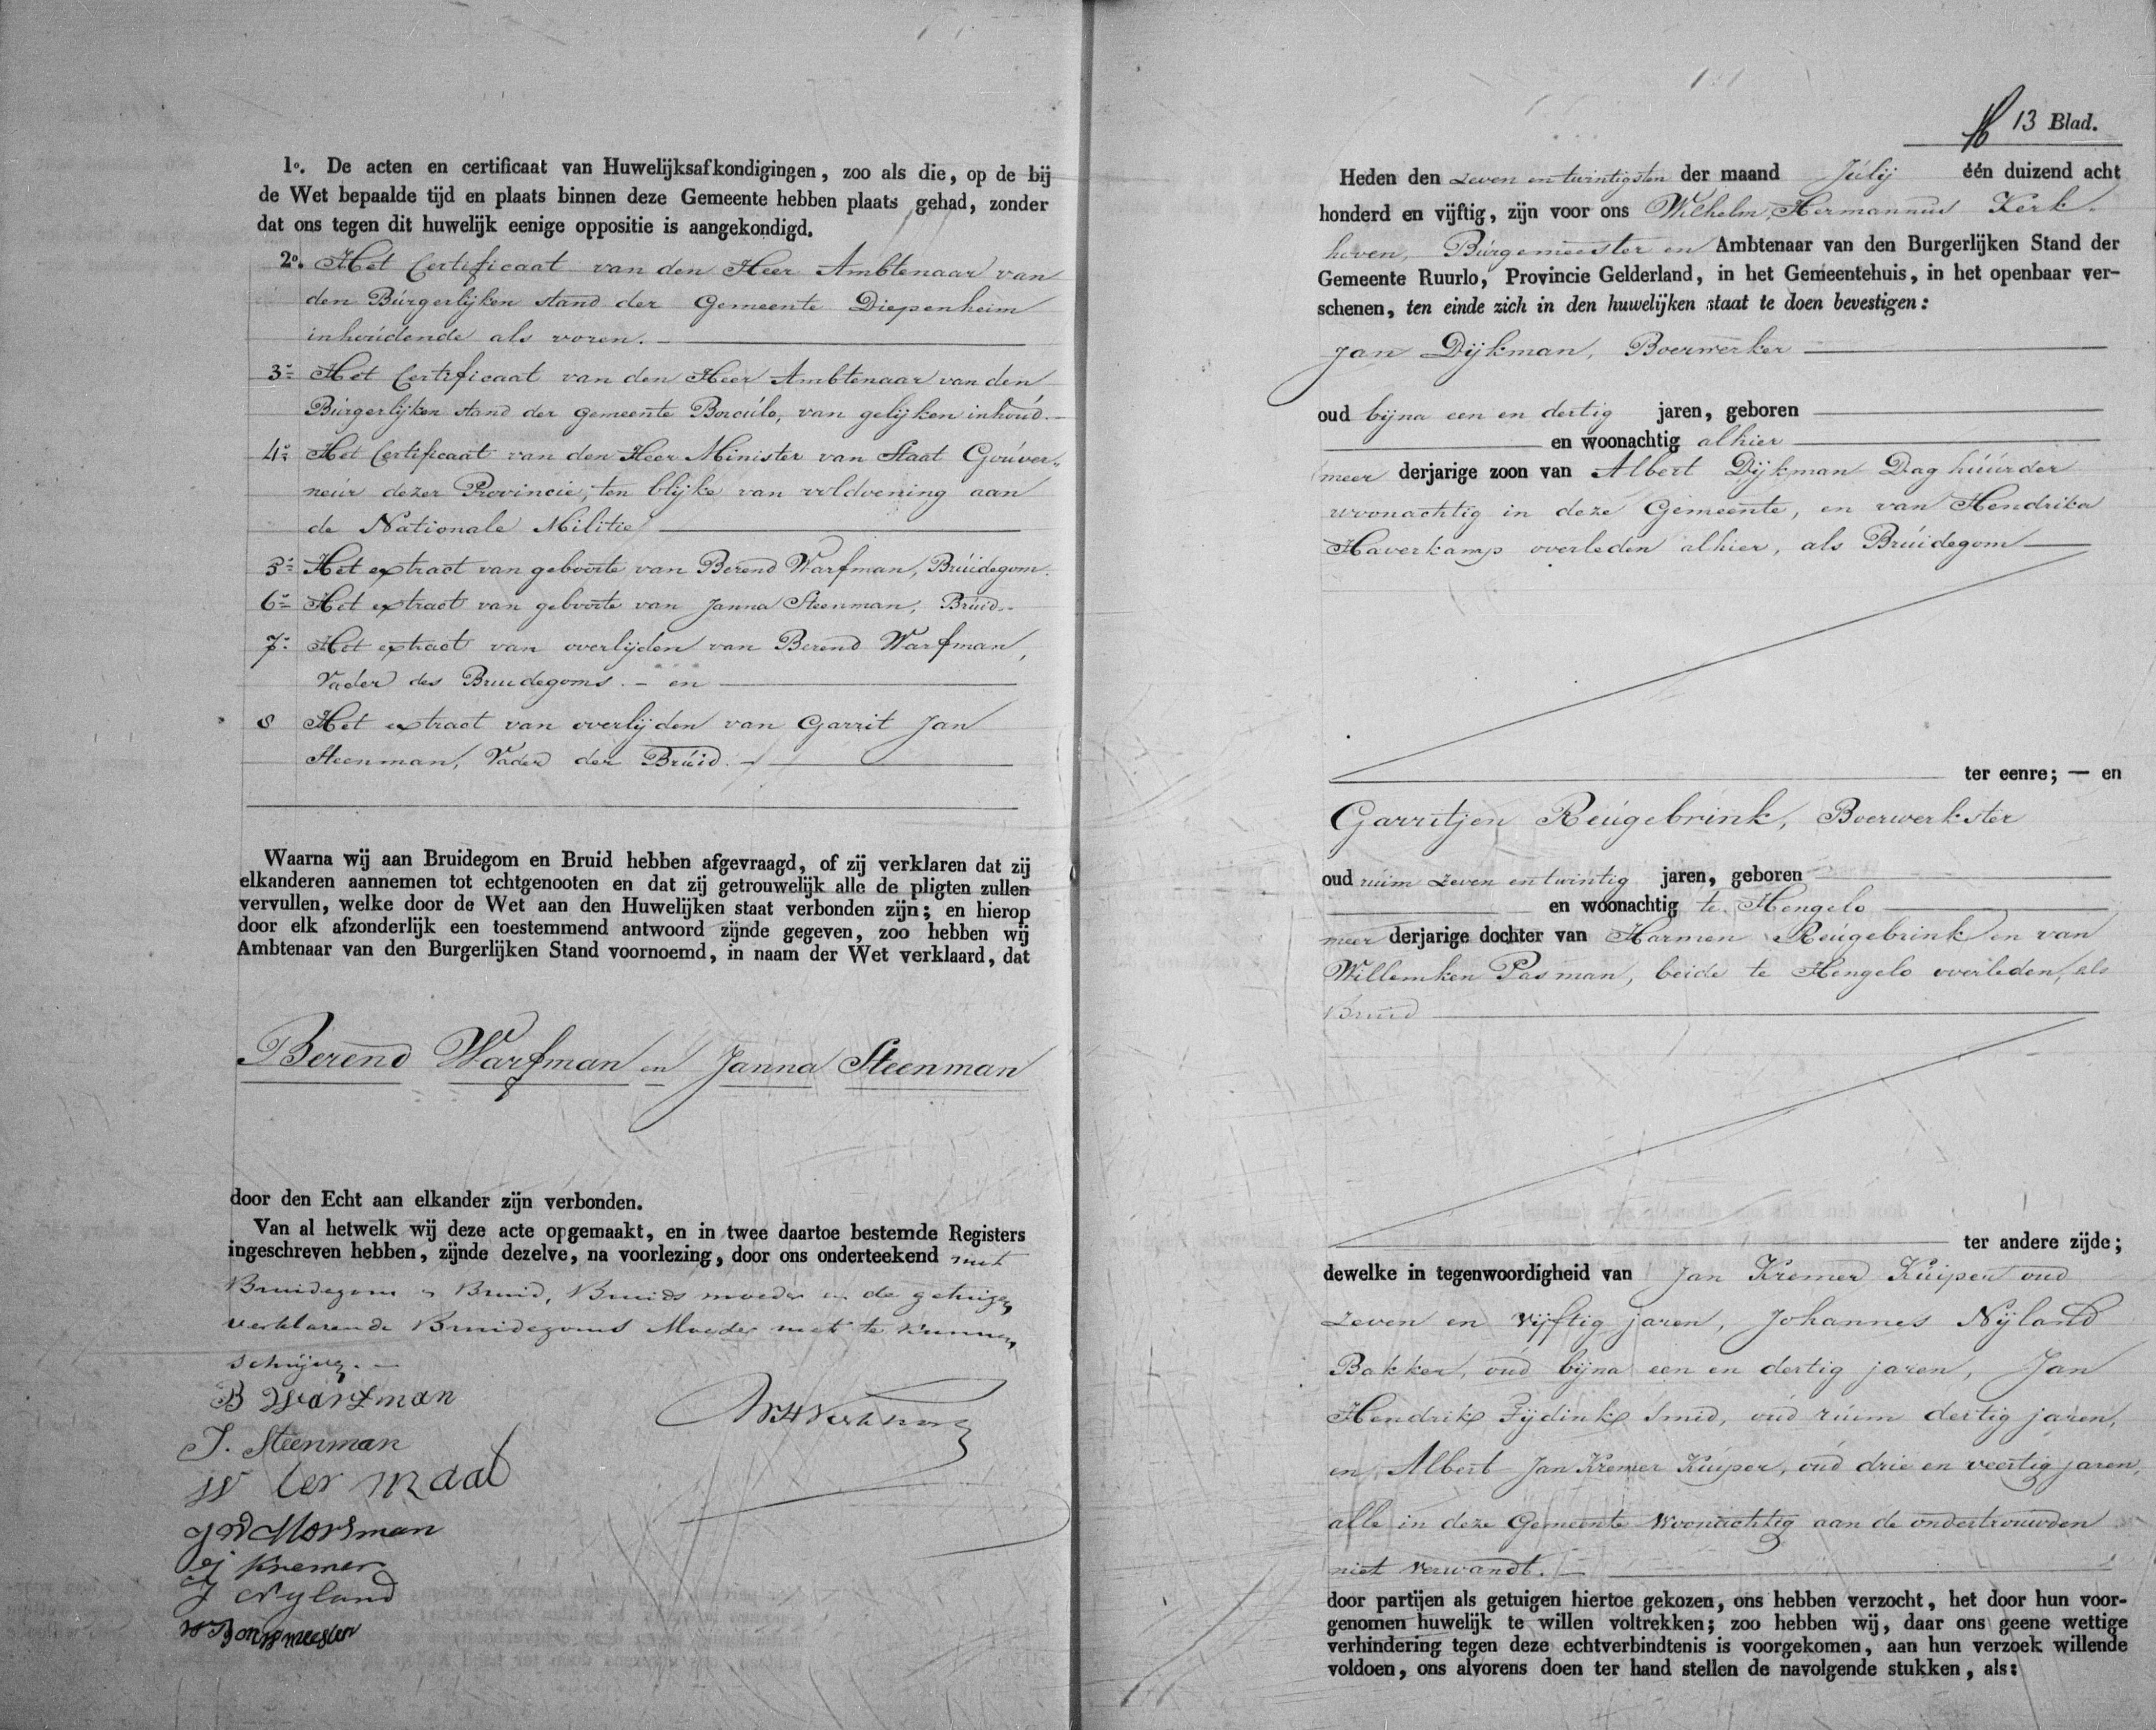 1o. De acten en certificaat van Huwelijksafkondigingen, zoo als die, op de bij
de Wet bepaalde tijd en plaats binnen deze Gemeente hebben plaats gehad, zonder
dat ons tegen dit huwelijk eenige oppositie is aangekondigd.
2o. Het Certificaat van den Heer Ambtenaar van
den Búrgerlijken stand der Gemeente Diepenheim
inhoúdende als voren.
3o Het Certificaat van den Heer Ambtenaar van den
Búrgerlijken stand der gemeente Borcúlo, van gelijken inhoúd.
4o Het Certificaat van den Heer Minister van Staat Goúver„
neúr dezer Provincie, ten blijke van voldoening aan
de Nationale Militie
5o Het extract van geboorte van Berend Warfman, Brúidegom.
6o Het extract van geboorte van Janna Steenman, Brúid.
7o Het extract van overlijden van Berend Warfman,
Vader des Bruidegoms. - en
8 Het extract van overlijden van Garrit Jan
Steenman, Vader der Brúid.
Waarna wij aan Bruidegom en Bruid hebben afgevraagd, of zij verklaren dat zij
elkanderen aannemen tot echtgenooten en dat zij getrouwelijk alle de pligten zullen
vervullen, welke door de Wet aan den Huwelijken staat verbonden zijn; en hierop
door elk afzonderlijk een toestemmend antwoord zijnde gegeven, zoo hebben wij
Ambtenaar van den Burgerlijken Stand voornoemd, in naam der Wet verklaard, dat
Berend Warfman en Janna Steenman
door den Echt aan elkander zijn verbonden.
Van al hetwelk wij deze acte opgemaakt, en in twee daartoe bestemde Registers
ingeschreven hebben, zijnde dezelve, na voorlezing, door ons onderteekend met
Bruidegom en Bruid, Bruids moeder en de getuigen,
verklarende Bruidegoms Moeder niet te kunnen
schrijven. -
B Warfman
J. Steenman
W ter Maat
Morsman
Kremer
J Nyland
WHKerkhoven
13 Blad.
Heden den zeven en twintigsten der maand Júlij één duizend acht
honderd en vijftig, zijn voor ons Wilhelm Hermannus Kerk-
hoven, Búrgemeester en Ambtenaar van den Burgerlijken Stand der
Gemeente Ruurlo, Provincie Gelderland, in het Gemeentehuis, in het openbaar ver-
schenen, ten einde zich in den huwelijken staat te doen bevestigen:
Jan Dijkman, Boerwerker
oud bijna een en dertig jaren, geboren
en woonachtig alhier
meer derjarige zoon van Albert Dijkman Dag húúrder
woonachtig in deze Gemeente, en van Hendrika
Haverkamp overleden alhier, als Brúidegom
ter eenre; — en
Garritjen Reúgebrink, Boerwerkster
oud ruim zeven en twintig jaren, geboren
en woonachtig te Hengelo
meer derjarige dochter van Harmen Reúgebrink en van
Willemken Pasman, beide te Hengelo overleden, als
Bruid
ter andere zijde;
dewelke in tegenwoordigheid van Jan Kremer Kúiper oud
zeven en vijftig jaren, Johannes Nijland
Bakker, oúd bijna een en dertig jaren, Jan
Hendrik Fijdink Smid, oúd rúim dertig jaren,
en, Albert Jan Kremer Kúiper, oúd drie en veertig jaren,
alle in deze Gemeente woonachtig aan de ondertrouwden
niet verwandt.
door partijen als getuigen hiertoe gekozen, ons hebben verzocht, het door hun voor-
genomen huwelijk te willen voltrekken; zoo hebben wij, daar ons geene wettige
verhindering tegen deze echtverbindtenis is voorgekomen, aan hun verzoek willende
voldoen, ons alvorens doen ter hand stellen de navolgende stukken, als: